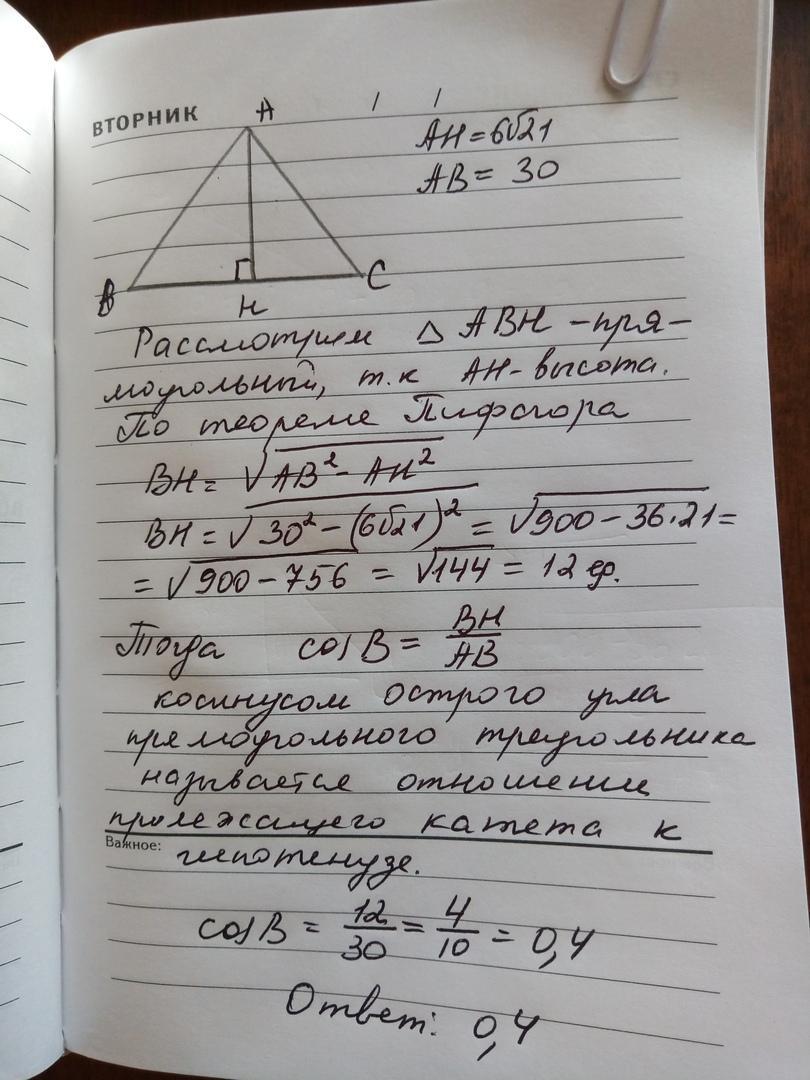 ВТОРНИК
A
AH=6√21
AB = 30
B
H
C
Рассмотрим △ ABH - пря-
моугольный, т.к AH - высота.
По теореме Пифагора
BH = √AB² - AH²
BH = √30² - (6√21)² = √900 - 36·21 =
= √900 - 756 = √144 = 12 ед.
Тогда cos B = BH/AB
косинусом острого угла
прямоугольного треугольника
называется отношении
прилежащего катета к
Важное:
гипотенузе.
cos B = 12/30 = 4/10 = 0,4
Ответ: 0,4